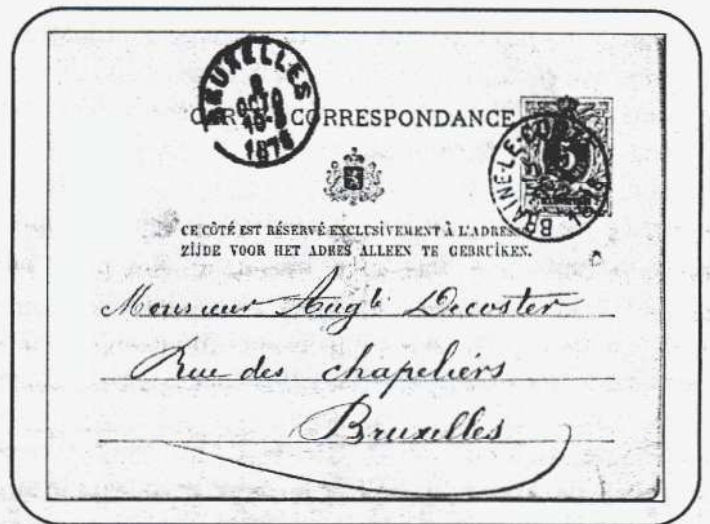 BRUXELLES
8
OCTO
1878
CARTE CORRESPONDANCE
5
BRAINE-LE-COMTE
CE CÔTÉ EST RÉSERVÉ EXCLUSIVEMENT À L'ADRES
ZIJDE VOOR HET ADRES ALLEEN TE GEBRUIKEN.
Monsieur Augte Decoster
Rue des chapeliers
Bruxelles